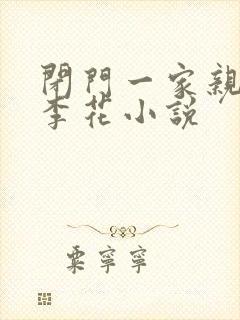 閉門一家親
李花小説
粟寧寧